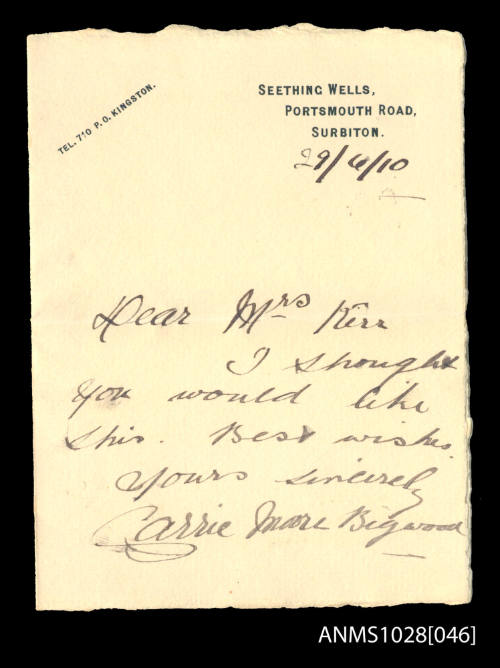 TEL. 710 P.O. KINGSTON.
SEETHING WELLS,
PORTSMOUTH ROAD,
SURBITON.
29/6/10
Dear Mrs Kerr
I thought
you would like
this. Best wishes.
Yours sincerely
Carrie Moore Bigwood
ANMS1028[046]